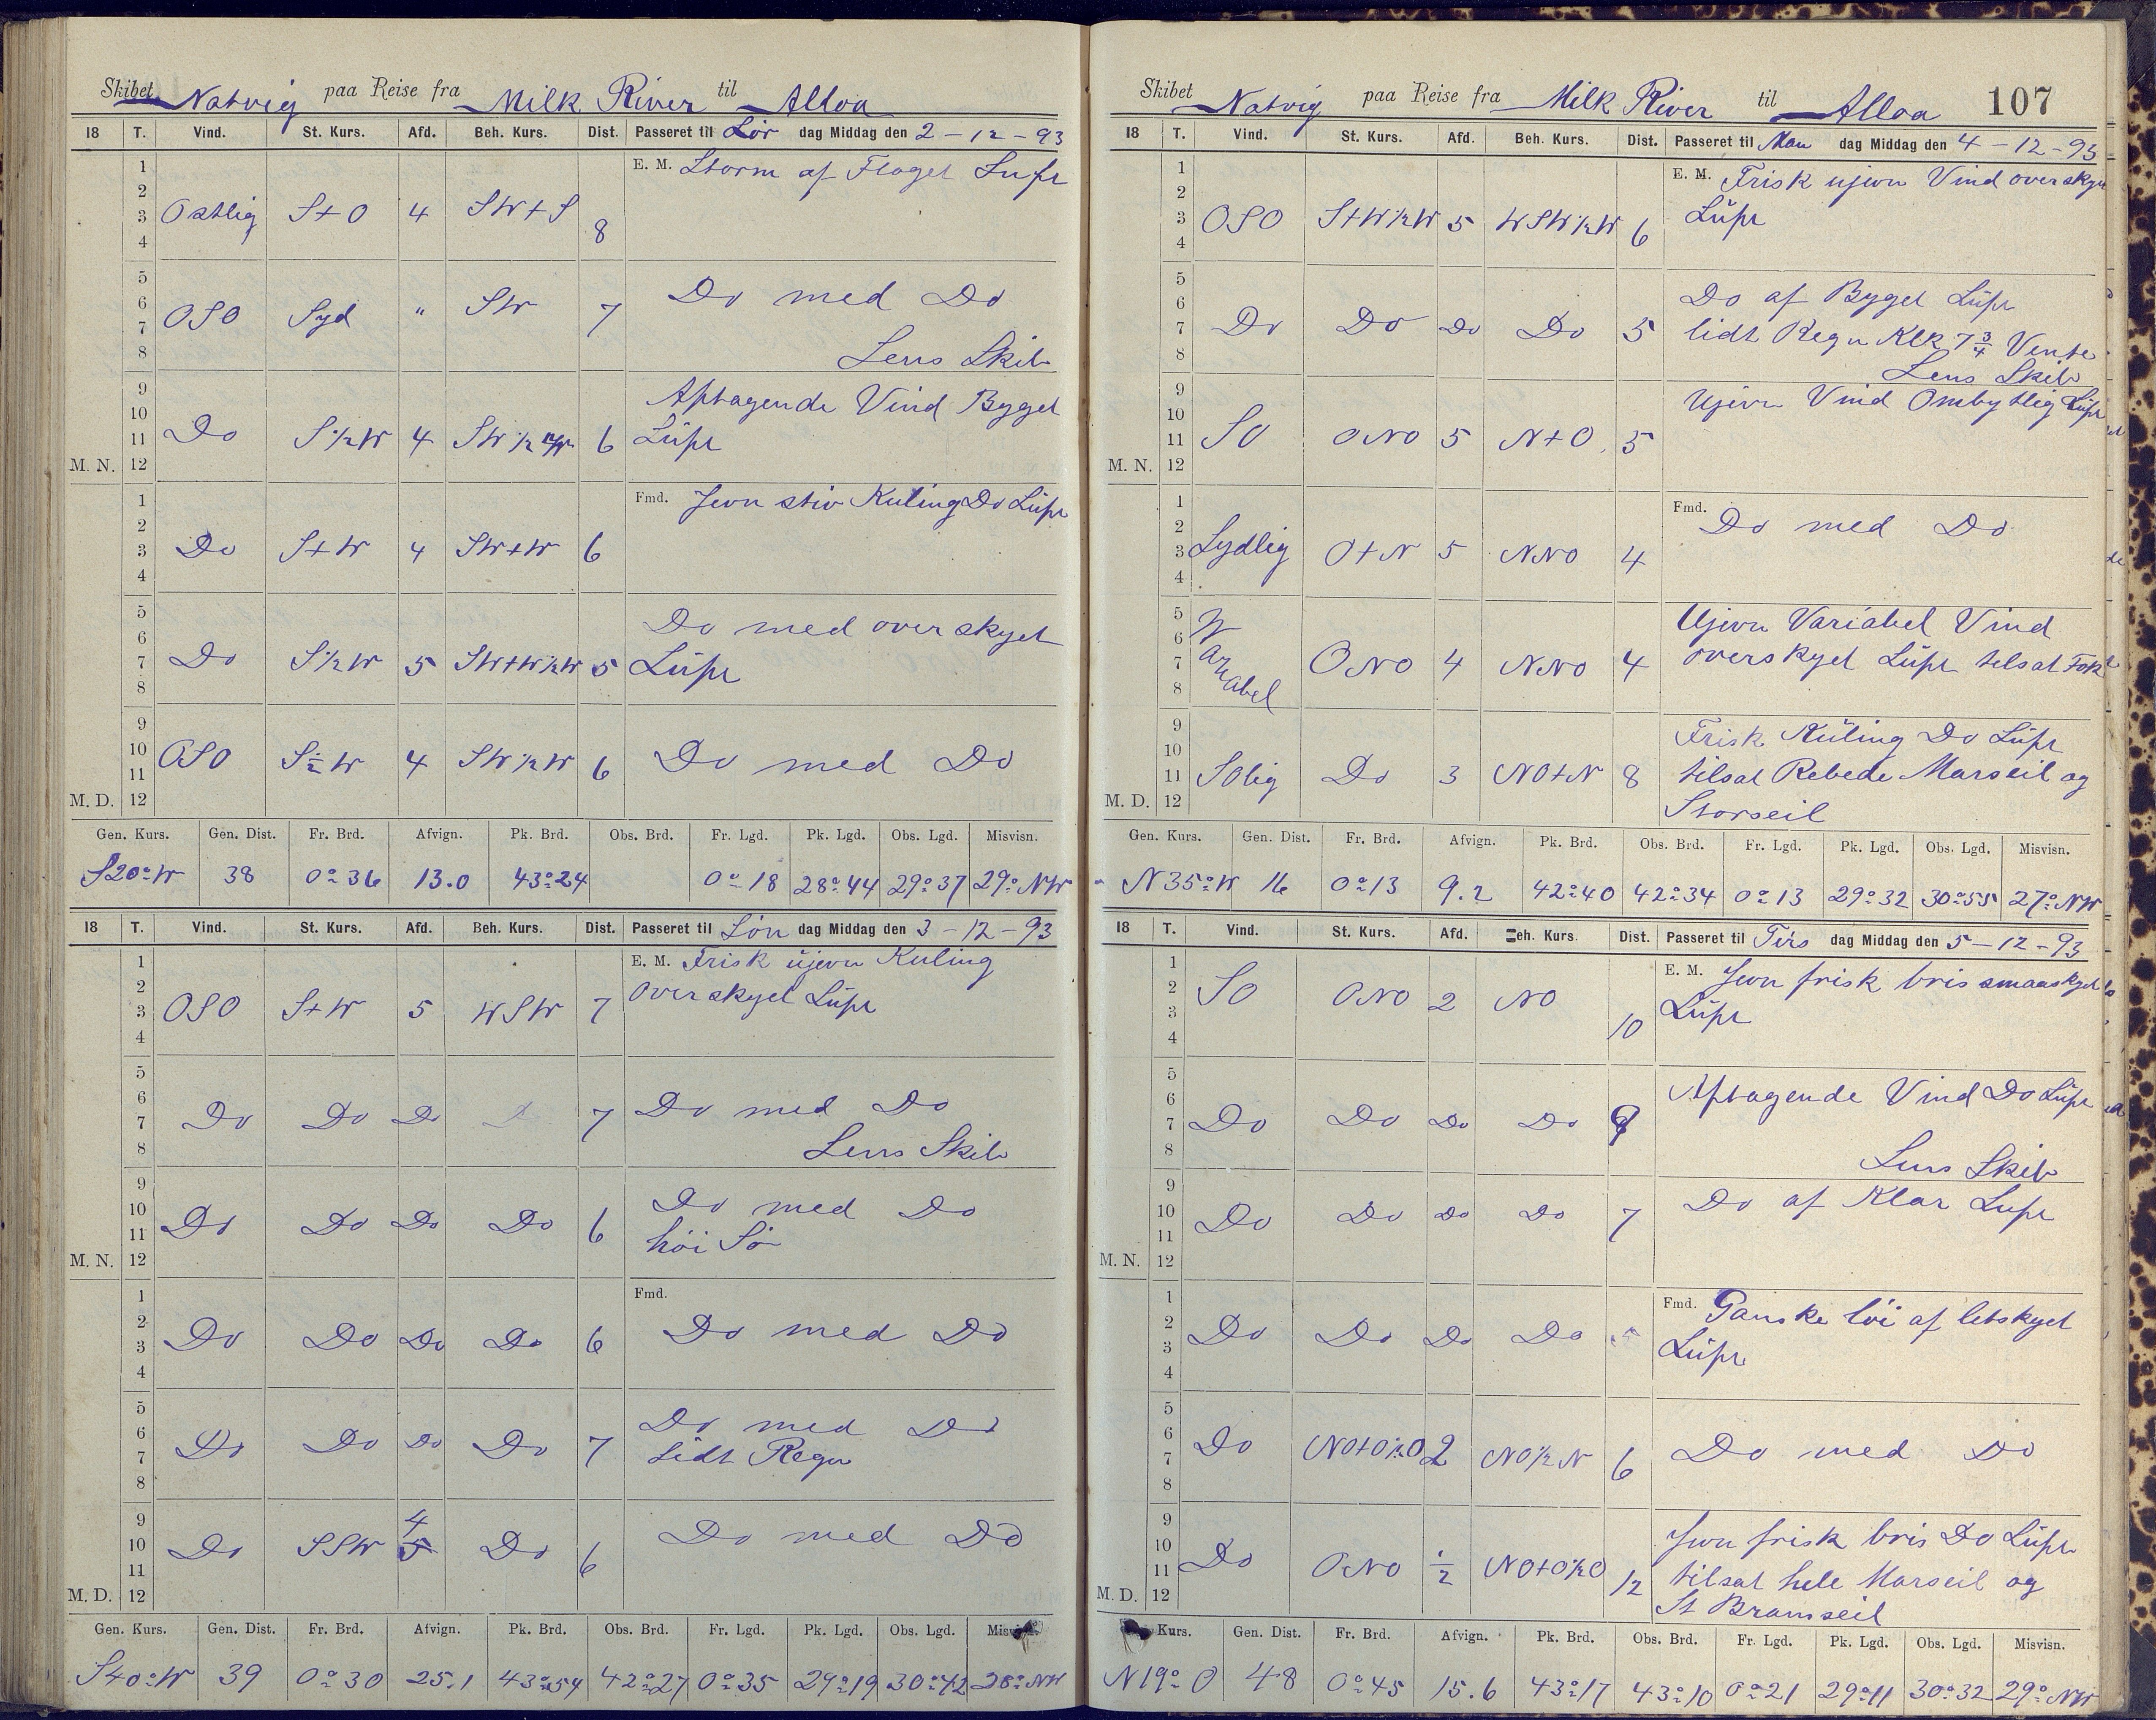 Skibet Natvig paa Reise fra Milk River til Alloa
18 T. Vind. St. Kurs. Afd. Beh. Kurs. Dist. Passeret til Lör dag Middag den 2 - 12 - 93
1 2 3 4 Ostlig S+O 4 SW+S 8 E. M. Storm af Flaget Lüft
5 6 7 8 OSO Syd " SW 7 Do med Do
Lens Skib
9 10 11 12 M. N. Do S½W 4 6 Aftagende Vind Byget
Lüft
1 2 3 4 Do S+W 4 SW+W 6 Fmd. Jevn stiv Kuling Do Lüft
5 6 7 8 Do S½W 5 SW+W½W 5 Do med overskyet
Lüft
9 10 11 12 M. D. OSO S½W 4 SW½W 6 Do med Do
Gen. Kurs. Gen. Dist. Fr. Brd. Afvign. Pk. Brd. Obs. Brd. Fr. Lgd. Pk. Lgd. Obs. Lgd. Misvisn.
S20°W 38 0°36 13.0 43°24 0°18 28°44 29°37 29° NW
18 T. Vind. St. Kurs. Afd. Beh. Kurs. Dist. Passeret til Sön dag Middag den 3 - 12 - 93
1 2 3 4 OSO S+W 5 WSW 7 E. M. Frisk üjevn Kuling
overskyet Lüft
5 6 7 8 Do Do Do 7 Do med Do
Lens Skib
9 10 11 12 M. N. Do Do Do Do 6 Do med Do
höi Sö
1 2 3 4 Do Do Do Do 6 Fmd. Do med Do
5 6 7 8 Do Do Do Do 7 Do med Do
Lidt Regn
9 10 11 12 M. D. Do SSW 4 5 Do 6 Do med Do
Gen. Kurs. Gen. Dist. Fr. Brd. Afvign. Pk. Brd. Obs. Brd. Fr. Lgd. Pk. Lgd. Obs. Lgd. Misvisn.
S40°W 39 0°30 25.1 43°54 42°27 0°35 29°19 30°42 28° NW
Skibet Natvig paa Reise fra Milk River til Alloa 107
18 T. Vind. St. Kurs. Afd. Beh. Kurs. Dist. Passeret til Man dag Middag den 4 - 12 - 93
1 2 3 4 OSO S+W½W 5 WSW½W 6 E. M. Frisk ujevn Vind overskyet
Lüft
5 6 7 8 Do Do Do Do 5 Do af Byget Lüft
lidt Regn Klk 7¾ Vente
Lens Skib
9 10 11 12 M. N. SO ONO 5 N+O 5 Ujevn Vind Ombytlig Lüft
1 2 3 4 Sydlig O+N 5 NNO 4 Fmd. Do med Do
5 6 7 8 Wariabel ONO 4 NNO 4 Ujevn Variabel Vind
overskyet Lüft tilsat Fok
9 10 11 12 M. D. SOlig Do 3 NO+N 8 Frisk Küling Do Lüft
tilsat Rebede Marseil og
Storseil
Gen. Kurs. Gen. Dist. Fr. Brd. Afvign. Pk. Brd. Obs. Brd. Fr. Lgd. Pk. Lgd. Obs. Lgd. Misvisn.
N35°W 16 0°13 9.2 42°40 42°34 0°13 29°32 30°55 27° NW
18 T. Vind. St. Kurs. Afd. Beh. Kurs. Dist. Passeret til Tirs dag Middag den 5 - 12 - 93
1 2 3 4 SO ONO 2 NO 10 E. M. Jevn frisk bris smaaskyet
Lüft
5 6 7 8 Do Do Do Do Aftagende Vind Do Lüft
Lens Skib
9 10 11 12 M. N. Do Do Do Do 7 Do af Klar Luft
1 2 3 4 Do Do Do Do Fmd. Ganske löi af letskyet
Lüft
5 6 7 8 Do NO+O½O 2 NO½N 6 Do med Do
9 10 11 12 M. D. Do ONO ½ NO+O½O 12 Jevn frisk bris Do Lüft
tilsat hele Marseil og
St Bramseil
Kurs. Gen. Dist. Fr. Brd. Afvign. Pk. Brd. Obs. Brd. Fr. Lgd. Pk. Lgd. Obs. Lgd. Misvisn.
N19°O 48 0°45 15.6 43°17 43°10 0°21 29°11 30°32 29° NW